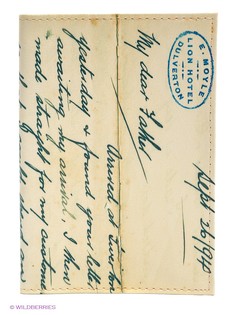 E. MOYLE
LION HOTEL
DULVERTON
Sept 26/910
My dear Father
Arrived at Tiverton
yesterday & found your letter
awaiting my arrival, I then
made straight for my customer
© WILDBERRIES